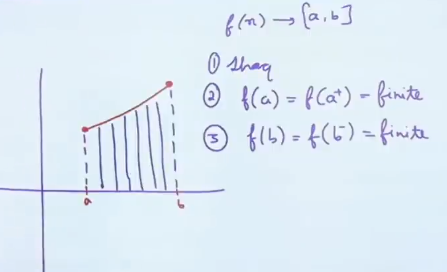 f(x) → [a, b]
① Shaq
② f(a) = f(a⁺) = finite
③ f(b) = f(b⁻) = finite
a b